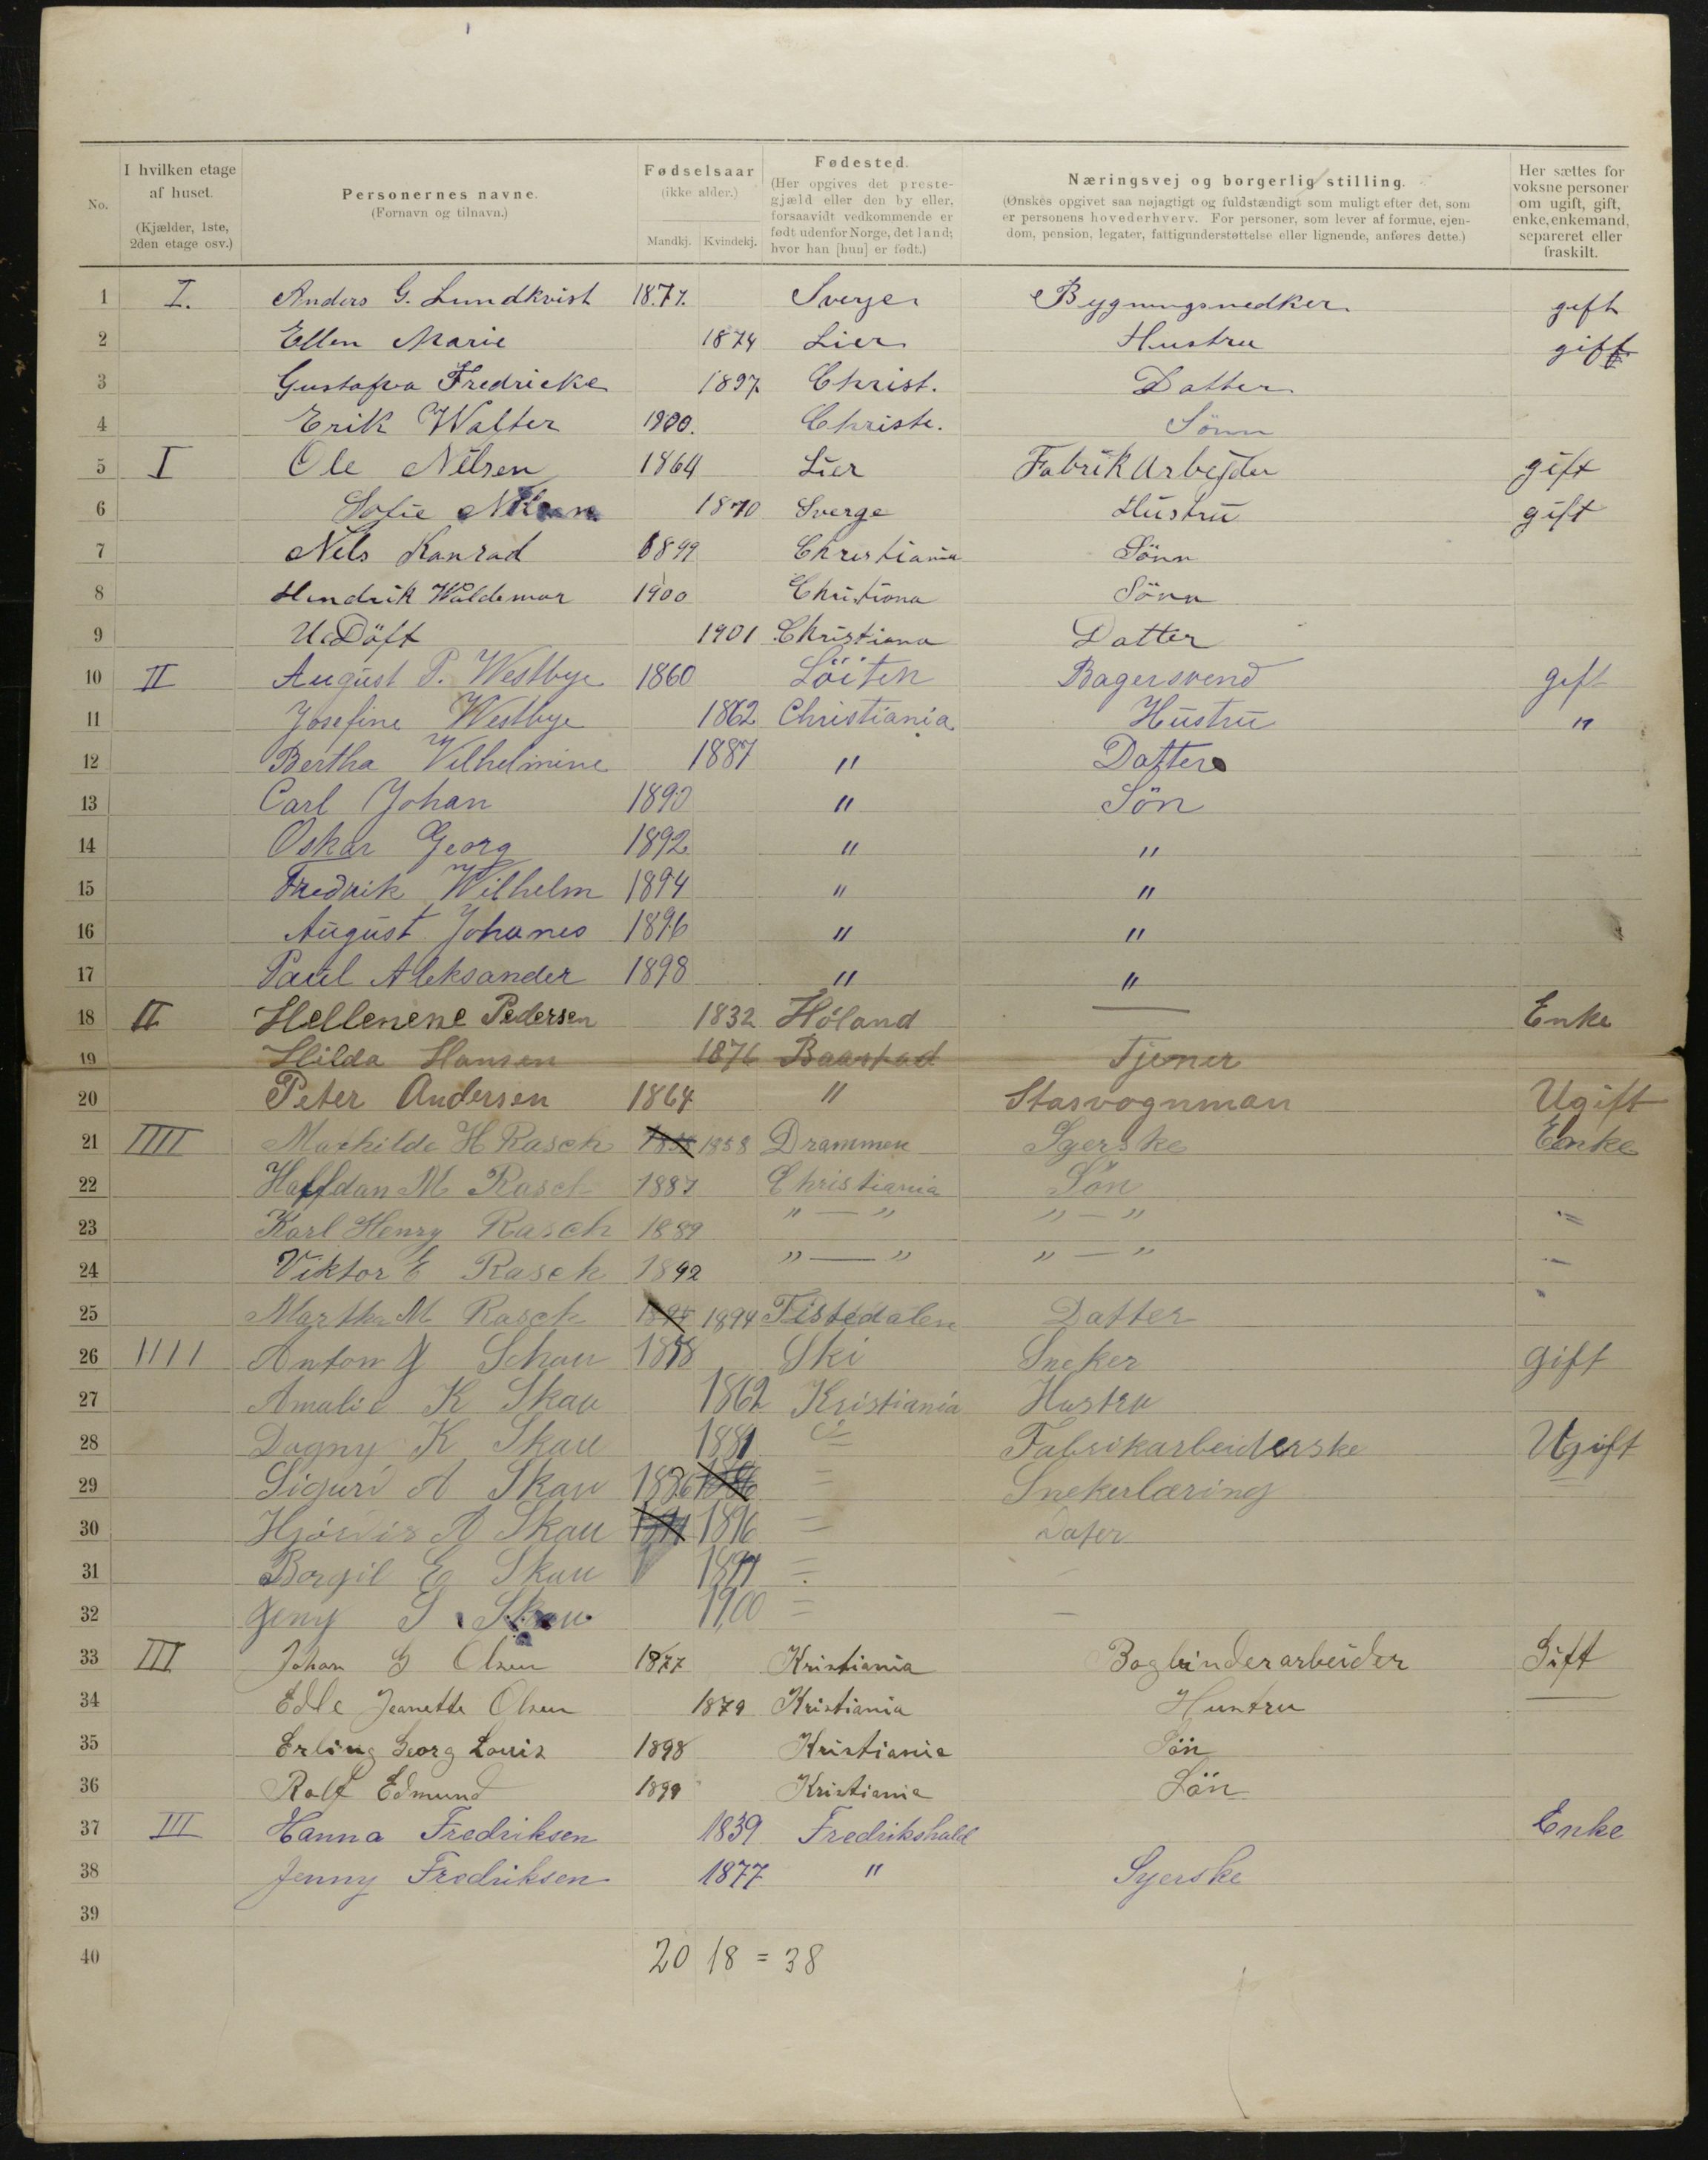 No.
I hvilken etage af huset. (Kjælder, 1ste, 2den etage osv.)
Personernes navne. (Fornavn og tilnavn.)
Fødselsaar (ikke alder.) Mandkj. Kvindekj.
Fødested. (Her opgives det prestegjæld eller den by eller, forsaavidt vedkommende er født udenfor Norge, det land; hvor han [hun] er født.)
Næringsvej og borgerlig stilling. (Ønskes opgivet saa nøjagtigt og fuldstændigt som muligt efter det, som er personens hovederhverv. For personer, som lever af formue, ejendom, pension, legater, fattigunderstøttelse eller lignende, anføres dette.)
Her sættes for voksne personer om ugift, gift, enke, enkemand, separeret eller fraskilt.
1 I. Anders G. Lundkvist 1877. Sverge Bygningsnedker gift
2 Ellen Marie 1874 Lier Hustru gift
3 Gustafva Fredricke 1897 Christ. Datter
4 Erik Walter 1900. Christi. Sönn
5 I Ole Nilsen 1864 Lier Fabrik Arbejder gift
6 Sofie Nilsen 1870 Sverge Hustru gift
7 Nils Konrad 1899 Christiania Sönn
8 Hendrik Waldemar 1900 Christiana Sönn
9 U. Döft 1901 Christiana Datter
10 II August P. Westbye 1860 Löiten Bagersvend gift
11 Josefine Westbye 1862 Christiania Hustru "
12 Bertha Vilhelmine 1887 " Datter
13 Carl Johan 1890 " Sön
14 Oskar Georg 1892 " "
15 Fredrik Wilhelm 1894 " "
16 August Johanes 1896 " "
17 Paul Aleksander 1898 " "
18 II Hellenene Pedersen 1832 Höland — Enke
19 Hilda Hansen 1876 Baastad Tjener
20 Peter Andersen 1864 " Stasvognman Ugift
21 IIII Mathilde H Rasch 1858 1858 Drammen Syerske Enke
22 Halfdan M Rasch 1887 Christiania Sön
23 Karl Henry Rasch 1889 " — " " — "
24 Viktor E Rasch 1892 " — " " — "
25 Martha M Rasch 1894 1894 Tistedalen Datter
26 IIII Anton J Schau 1858 Ski Sneker gift
27 Amalie K Skau 1862 Kristiania Hustru
28 Dagny K Skau 1881 Fabrikarbeiderske Ugift
29 Sigurd A Skau 1886 1886 = Snekerlæring =
30 Hjördis A Skau 1896 = Dater
31 Borgil E Skau =
32 Jeny S Skau 1900 = —
33 III Johan G Olsen 1877 Kristiania Bogbinderarbeider Gift
34 Edle Jeanette Olsen 1879 Kristiania Hustru —
35 Erling Georg Louis 1898 Kristiania Sön
36 Rolf Edmund 1899 Kristiania Sön
37 III Hanna Fredriksen 1839 Fredrikshald Enke
38 Jenny Fredriksen 1877 " Syerske
39
40 20 18 = 38